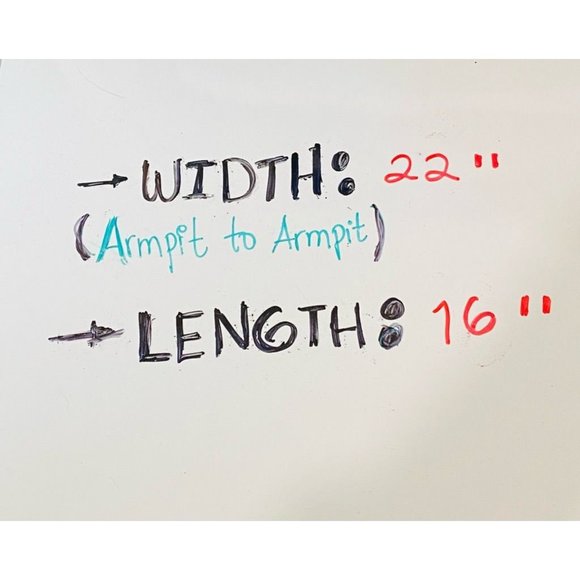 → WIDTH: 22"
(Armpit to Armpit)
→ LENGTH: 16"